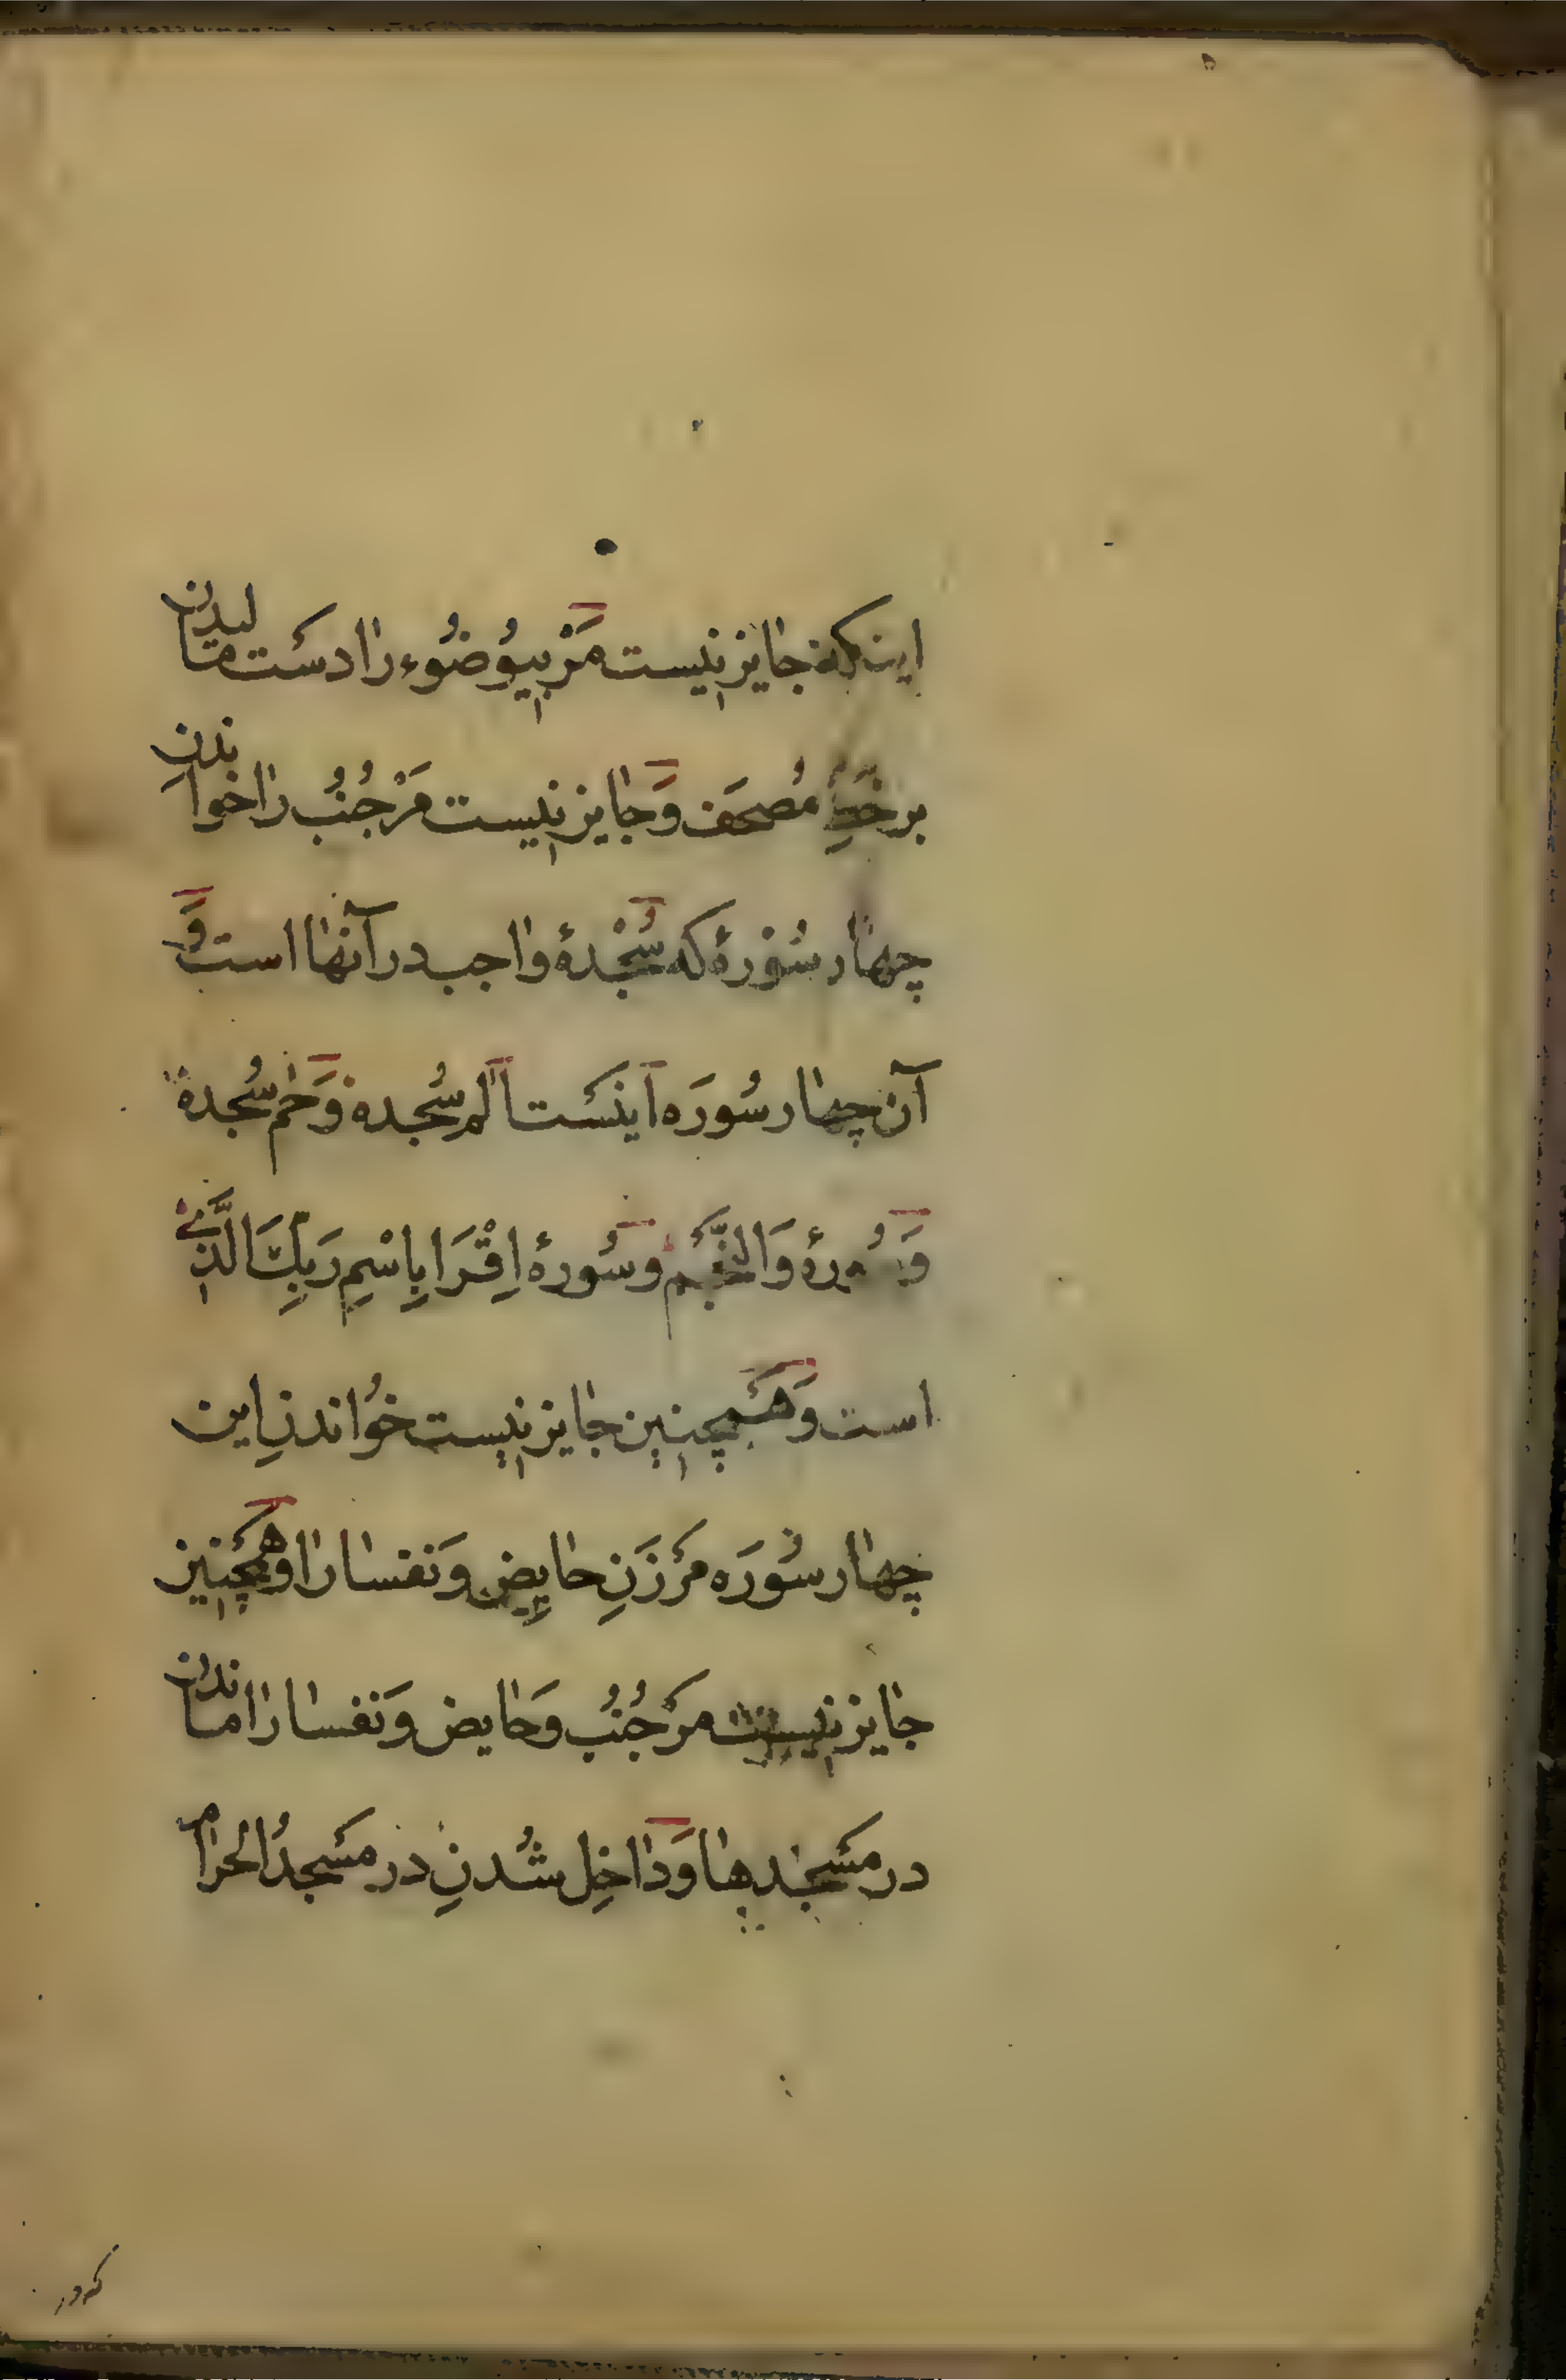 اینکه جایز نیست مَرْ بیوُضُوء را دسْت مالیدن
بر خَطِّ مُصحَف وَ جایز نیست مَرْ جُنُبْ را خواندنِ
چهار سُوْرهٔ که سُجْدهٔ واجب در آنها است وَ
آن چهار سُورَه اینسْت الٓم سُجده وَ حٰم سُجده
وَ سُورهٔ وَالنَّجْمْ و سُورهٔ اِقْرَا بِاسْمِ رَبِّكَ الَّذی
است وَ هَمْچنین جایز نیست خوُاندنِ این
چهار سُورَه مَرْ زَنِ حایِض وَ نفسا را و همْچنین
جایز نیست مَرْ جُنُبْ وَ حایض وَ نفسا را ماندن
در مسْجدها وَ داخِل شُدنِ در مسْجدُ الحرام
که در